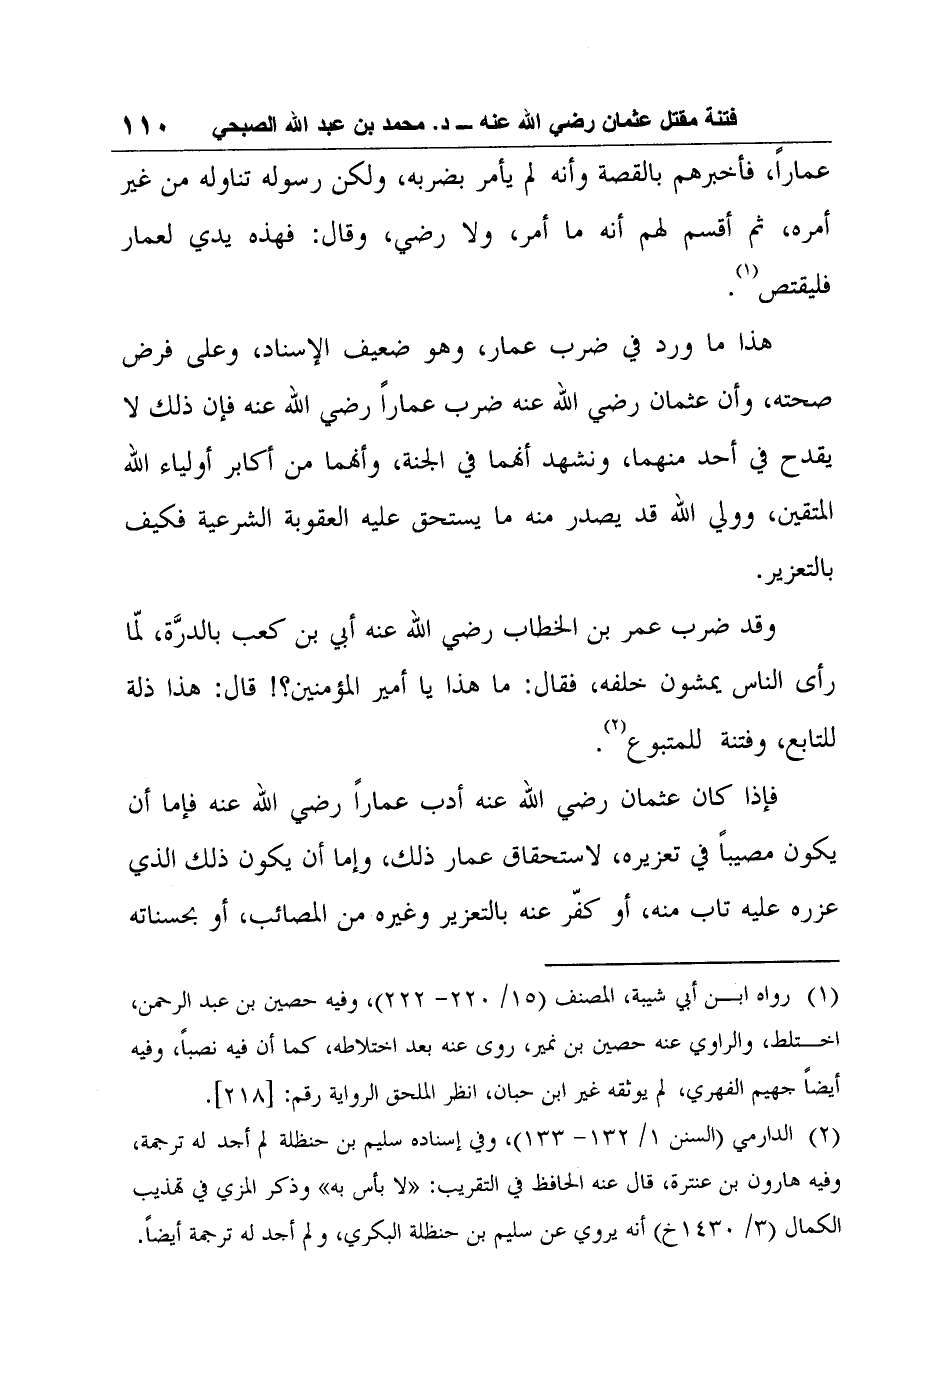 فتنة مقتل عثمان رضي الله عنه ــ د. محمد بن عبد الله الصبحي ١١٠
عماراً، فأخبرهم بالقصة وأنه لم يأمر بضربه، ولكن رسوله تناوله من غير
أمره، ثم أقسم لهم أنه ما أمر، ولا رضي، وقال: فهذه يدي لعمار
فليقتص(١).
هذا ما ورد في ضرب عمار، وهو ضعيف الإسناد، وعلى فرض
صحته، وأن عثمان رضي الله عنه ضرب عماراً رضي الله عنه فإن ذلك لا
يقدح في أحد منهما، ونشهد أنهما في الجنة، وأنهما من أكابر أولياء الله
المتقين، وولي الله قد يصدر منه ما يستحق عليه العقوبة الشرعية فكيف
بالتعزير.
وقد ضرب عمر بن الخطاب رضي الله عنه أبي بن كعب بالدرَّة، لمّا
رأى الناس يمشون خلفه، فقال: ما هذا يا أمير المؤمنين؟! قال: هذا ذلة
للتابع، وفتنة للمتبوع(٢).
فإذا كان عثمان رضي الله عنه أدب عماراً رضي الله عنه فإما أن
يكون مصيباً في تعزيره، لاستحقاق عمار ذلك، وإما أن يكون ذلك الذي
عزره عليه تاب منه، أو كفّر عنه بالتعزير وغيره من المصائب، أو بحسناته
(١) رواه ابـن أبي شيبة، المصنف (١٥/ ٢٢٠- ٢٢٢)، وفيه حصين بن عبد الرحمن،
اخـتلط، والراوي عنه حصين بن نمير، روى عنه بعد اختلاطه، كما أن فيه نصباً، وفيه
أيضاً جهيم الفهري، لم يوثقه غير ابن حبان، انظر الملحق الرواية رقم: [٢١٨].
(٢) الدارمي (السنن ١/ ١٣٢- ١٣٣)، وفي إسناده سليم بن حنظلة لم أجد له ترجمة،
وفيه هارون بن عنترة، قال عنه الحافظ في التقريب: «لا بأس به» وذكر المزي في تهذيب
الكمال (٣/ ١٤٣٠خ) أنه يروي عن سليم بن حنظلة البكري، ولم أجد له ترجمة أيضاً.